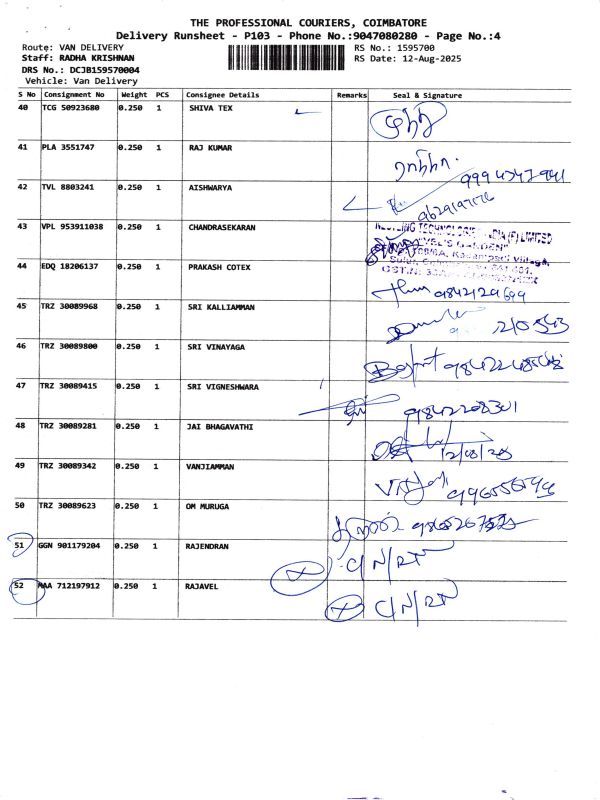 THE PROFESSIONAL COURIERS, COIMBATORE
Delivery Runsheet - P103 - Phone No.:9047080280 - Page No.:4
Route: VAN DELIVERY
RS No.: 1595700
Staff: RADHA KRISHNAN
RS Date: 12-Aug-2025
DRS No.: DCJB159570004
Vehicle: Van Delivery
S No Consignment No Weight PCS Consignee Details Remarks Seal & Signature
40 TCG 50923680 0.250 1 SHIVA TEX
41 PLA 3551747 0.250 1 RAJ KUMAR
42 TVL 8803241 0.250 1 AISHWARYA
43 VPL 953911038 0.250 1 CHANDRASEKARAN
44 EDQ 18206137 0.250 1 PRAKASH COTEX
45 TRZ 30089968 0.250 1 SRI KALLIAMMAN
46 TRZ 30089800 0.250 1 SRI VINAYAGA
47 TRZ 30089415 0.250 1 SRI VIGNESHWARA
9842208301
48 TRZ 30089281 0.250 1 JAI BHAGAVATHI
12/08/25
49 TRZ 30089342 0.250 1 VANJIAMMAN
50 TRZ 30089623 0.250 1 OM MURUGA
51 GGN 901179204 0.250 1 RAJENDRAN
C/N/RTN
52 MAA 712197912 0.250 1 RAJAVEL
C/N/RTN